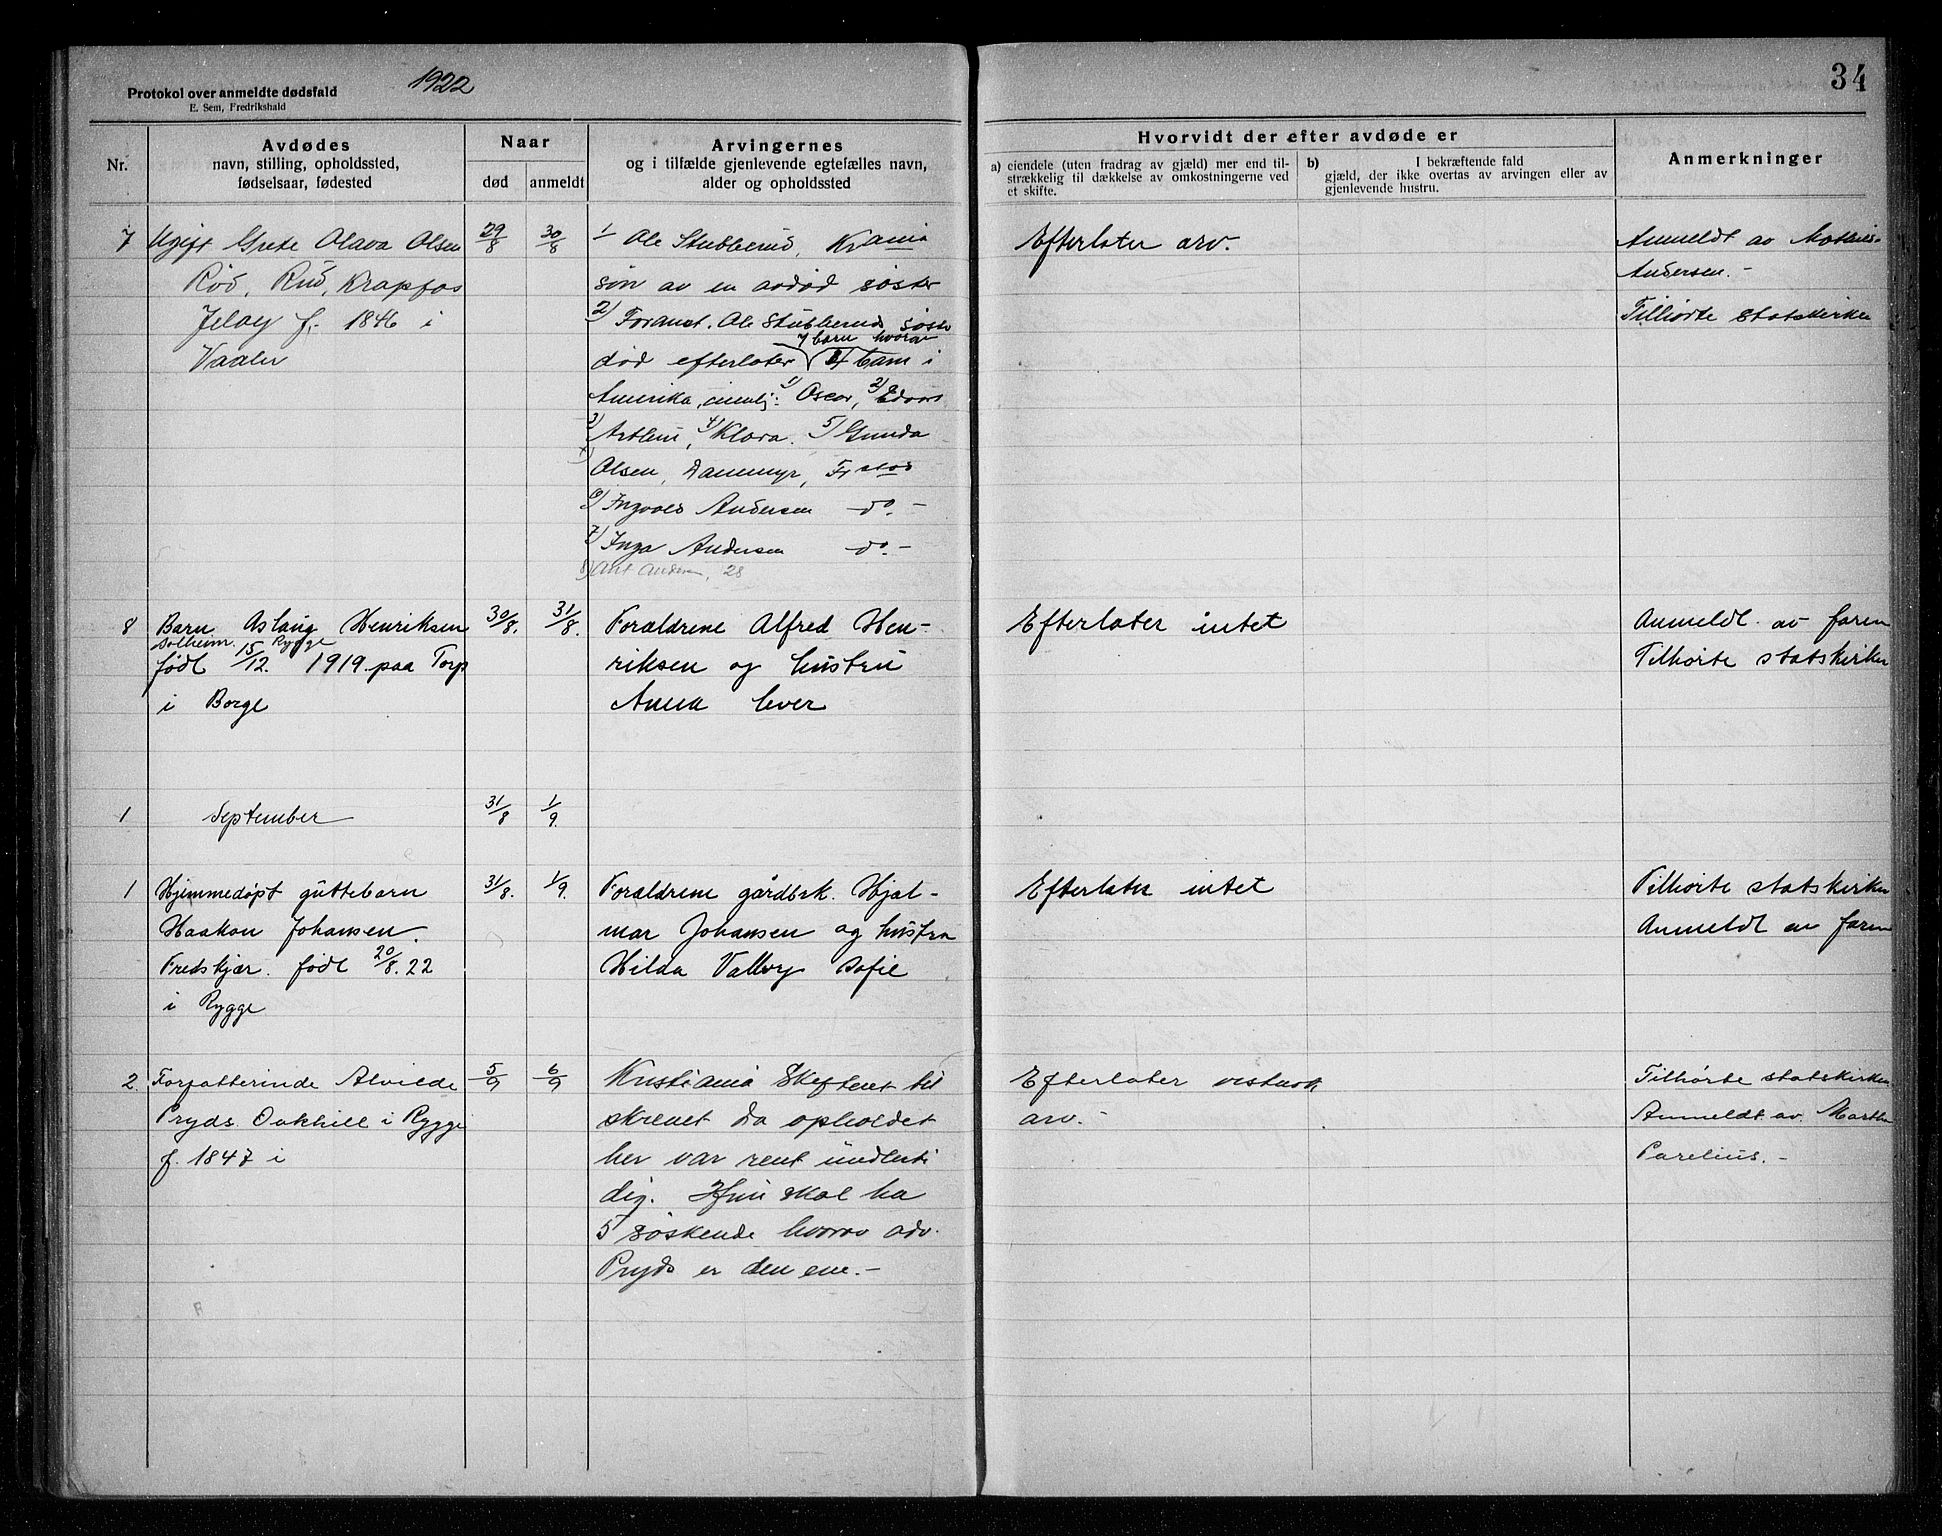 1922
34
Protokol over anmeldte dødsfald
E. Sem, Fredrikshald
Nr.
Avdødes
navn, stilling, opholdssted,
fødselsaar, fødested
Naar
død
anmeldt
Arvingernes
og i tilfælde gjenlevende egtefælles navn,
alder og opholdssted
Hvorvidt der efter avdøde er
a) eiendele (uten fradrag av gjæld) mer end til-
strækkelig til dækkelse av omkostningerne ved
et skifte.
b) I bekræftende fald
gjæld, der ikke overtas av arvingen eller av
gjenlevende hustru.
Anmerkninger
7
Ugift Grete Olava Olsen
Rød, Rud, Krapfos
Jeløy f. 1846 i
Vaaler
29/8
30/8
1 Ole Stubberud, Krania
søn av en avdød søster
2) Foranst. Ole Stubberuds søst
7 barn hvorav
død efterlater 4 barn i
Amerika, nemlig: 1) Oscar, 2) Edvard
3) Arthur, 4) Klara. 5) Gunda
Olsen, Dammyr, Fr stad
6) Ingvald Andersen do. -
7) Inga Andersen do. -
8) Andersen, 28
Efterlater arv.
Anmeldt av Mathias
Andersen. -
Tilhørte statskirken
8
Barn Aslaug Henriksen
Solheim. Rygge
født 15/12. 1919. paa Torp
i Borge
30/8.
31/8.
Forældrene Alfred Hen-
riksen og hustru
Anna lever
Efterlater intet
Anmeldt av faren
Tilhørte statskirken
1
September
31/8
1/9.
1
Hjemmedøpt guttebarn
Haakon Johansen.
Fredskjær. født 20/8. 22
i Rygge
31/8.
1/9.
Forældrene gårdbrk. Hjal-
mar Johansen og hustru
Hilda Valborg Sofie
Efterlater intet
Tilhørte statskirken
Anmeldt av faren
2
Forfatterinde Alvilde
Pryds. Oakhill i Rygge
f. 1847 i
5/9
6/9
Kristiania Skifteret til
skrevet da opholdet
her var rent midlerti
dig. Hun skal ha
5 søskende hvorav adv.
Pryds er den ene. -
Efterlater vistnok
arv. -
Tilhørte statskirken
Anmeldt av. Martha
Parelius. -